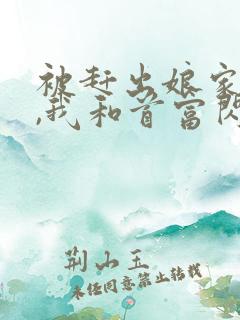 被赶出娘家
,我和首富闪
荆山玉
未经同意禁止转载